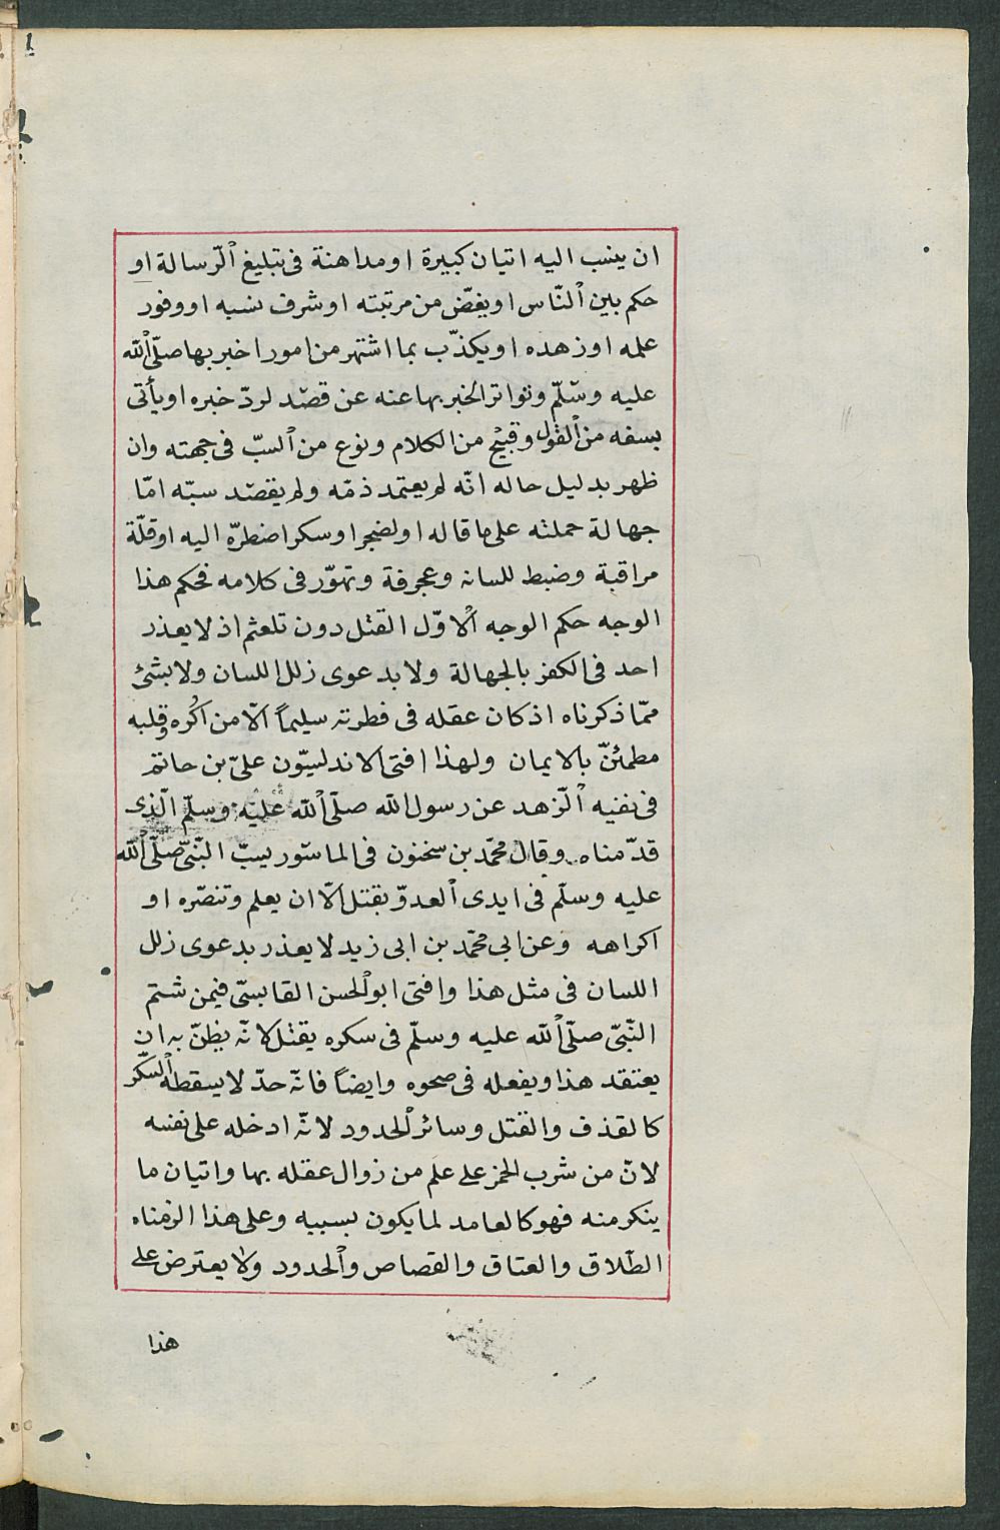 ان ينسب اليه اتيان كبيرة او مداهنة فى تبليغ الرّسالة او
حكم بين النّاس او يغضّ من مرتبته او شرف نسبه او وفور
علمه او زهده او يكذّب بما اشتهر من امور اخبر بها صلّى الله
عليه وسّلّم وتواتر الخبر بها عنه عن قصّد لردّ خبره او يأتى
بسفه من القول وقبيْح من الكلام ونوع من السبّ فى جهته وان
ظهر بدليل حاله انّه لم يعتمد ذمّه ولم يقصّد سبّه امّا
جهالة حملته على ما قاله او لضجر او سكر اضطرّه اليه او قلّة
مراقبة وضبط للسانه وعجرفة وتهوّر فى كلامه فحكم هذا
الوجه حكم الوجه الاوّل القتل دون تلعثم اذ لا يعذر
احد فى الكفر بالجهالة ولا بدعوى زلل اللسان ولا بشئ
ممّا ذكرناه اذ كان عقله فى فطرته سليماً الّا من اكُره وقلبه
مطمئنّ بالايمان ولهذا افتى الاندلسيّون علىّ بن حاتم
فى نفيه الزّهد عن رسول الله صلّى الله عليه وسلّم الّذى
قدّمناه وقال محمّد بن سخنون فى الماسّور يسبّ النّبىّ صلّى الله
عليه وسلّم فى ايدى العدوّ يقتل الّا ان يعلم وتنصّره او
اكراهه وعن ابى محمّد بن ابى زيد لا يعذر بدعوى زلل
اللسان فى مثل هذا وافتى ابو الحسن القابسىّ فيمن شتم
النّبىّ صلّى الله عليه وسلّم فى سكره يقتل لانّه يظنّ به ان
يعتقد هذا ويفعله فى صحوه وايضاً فانّه حدّ لا يسقطه السكّر
كالقذف والقتل وسائر الحدود لانّه ادخله على نفسه
لانّ من شرب الخمر على علم من زوال عقله بها واتيان ما
ينكر منه فهو كالعامد لما يكون بسببه وعلى هذا الزمناه
الطّلاق والعتاق والقصاص والحدود ولا يعترض على
هذا